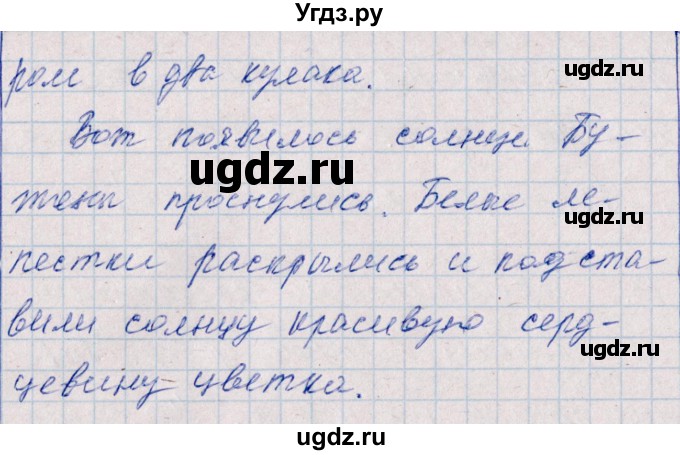 Угдз.ру
ром в два кулака.
Вот появилось солнце. Бу-
тоны проснулись. Белые ле-
пестки раскрылись и подста-
вили солнцу красивую серд-
цевину цветка.
ugdz.ru
ugdz.ru
ugdz.ru
ugdz.ru
ugdz.ru
ugdz.ru
ugdz.ru